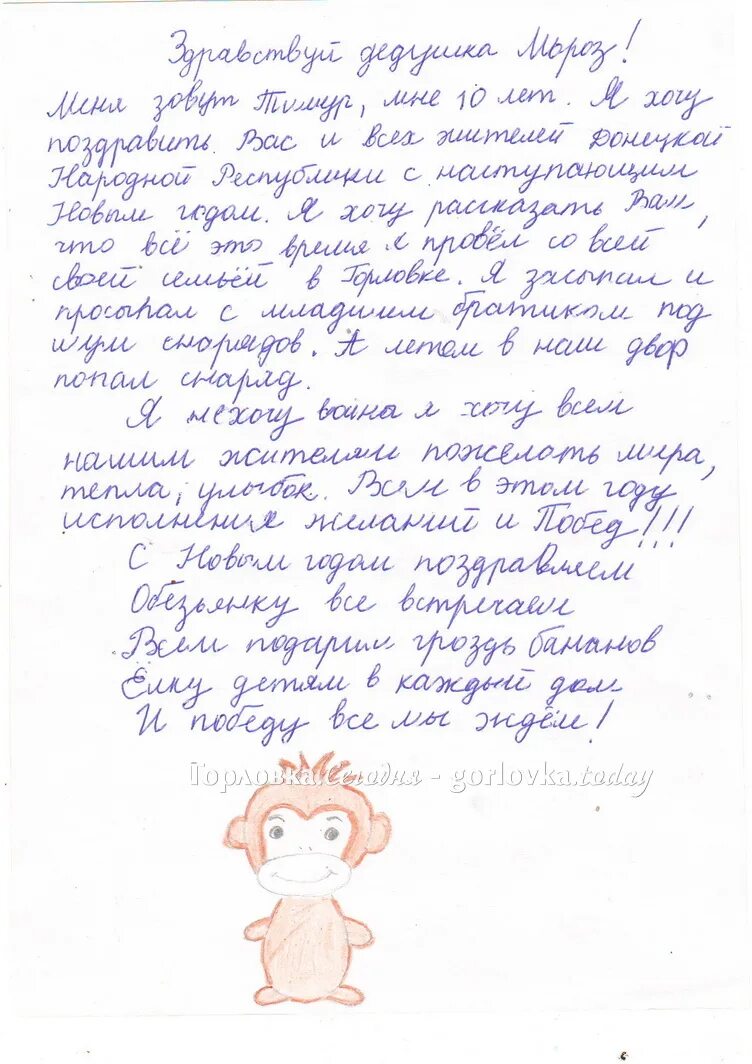 Здравствуй дедушка Мороз!
Меня зовут Тимур, мне 10 лет. Я хочу
поздравить Вас и всех жителей Донецкой
Народной Республики с наступающим
Новым годом. Я хочу рассказать Вам,
что всё это время я провёл со всей
своей семьёй в Горловке. Я засыпал и
просыпал с младшим братиком под
шум снарядов. А летом в наш двор
попал снаряд.
Я не хочу война я хочу всем
нашим жителям пожелать мира,
тепла, улыбок. Всем в этом году
исполнения желаний и Побед!!!
С Новым годом поздравляем
Обезьянку все встречаем
Всем подарим гроздь бананов
Ёлку детям в каждый дом
И победу все мы ждём!
Горловка.Сегодня - gorlovka.today